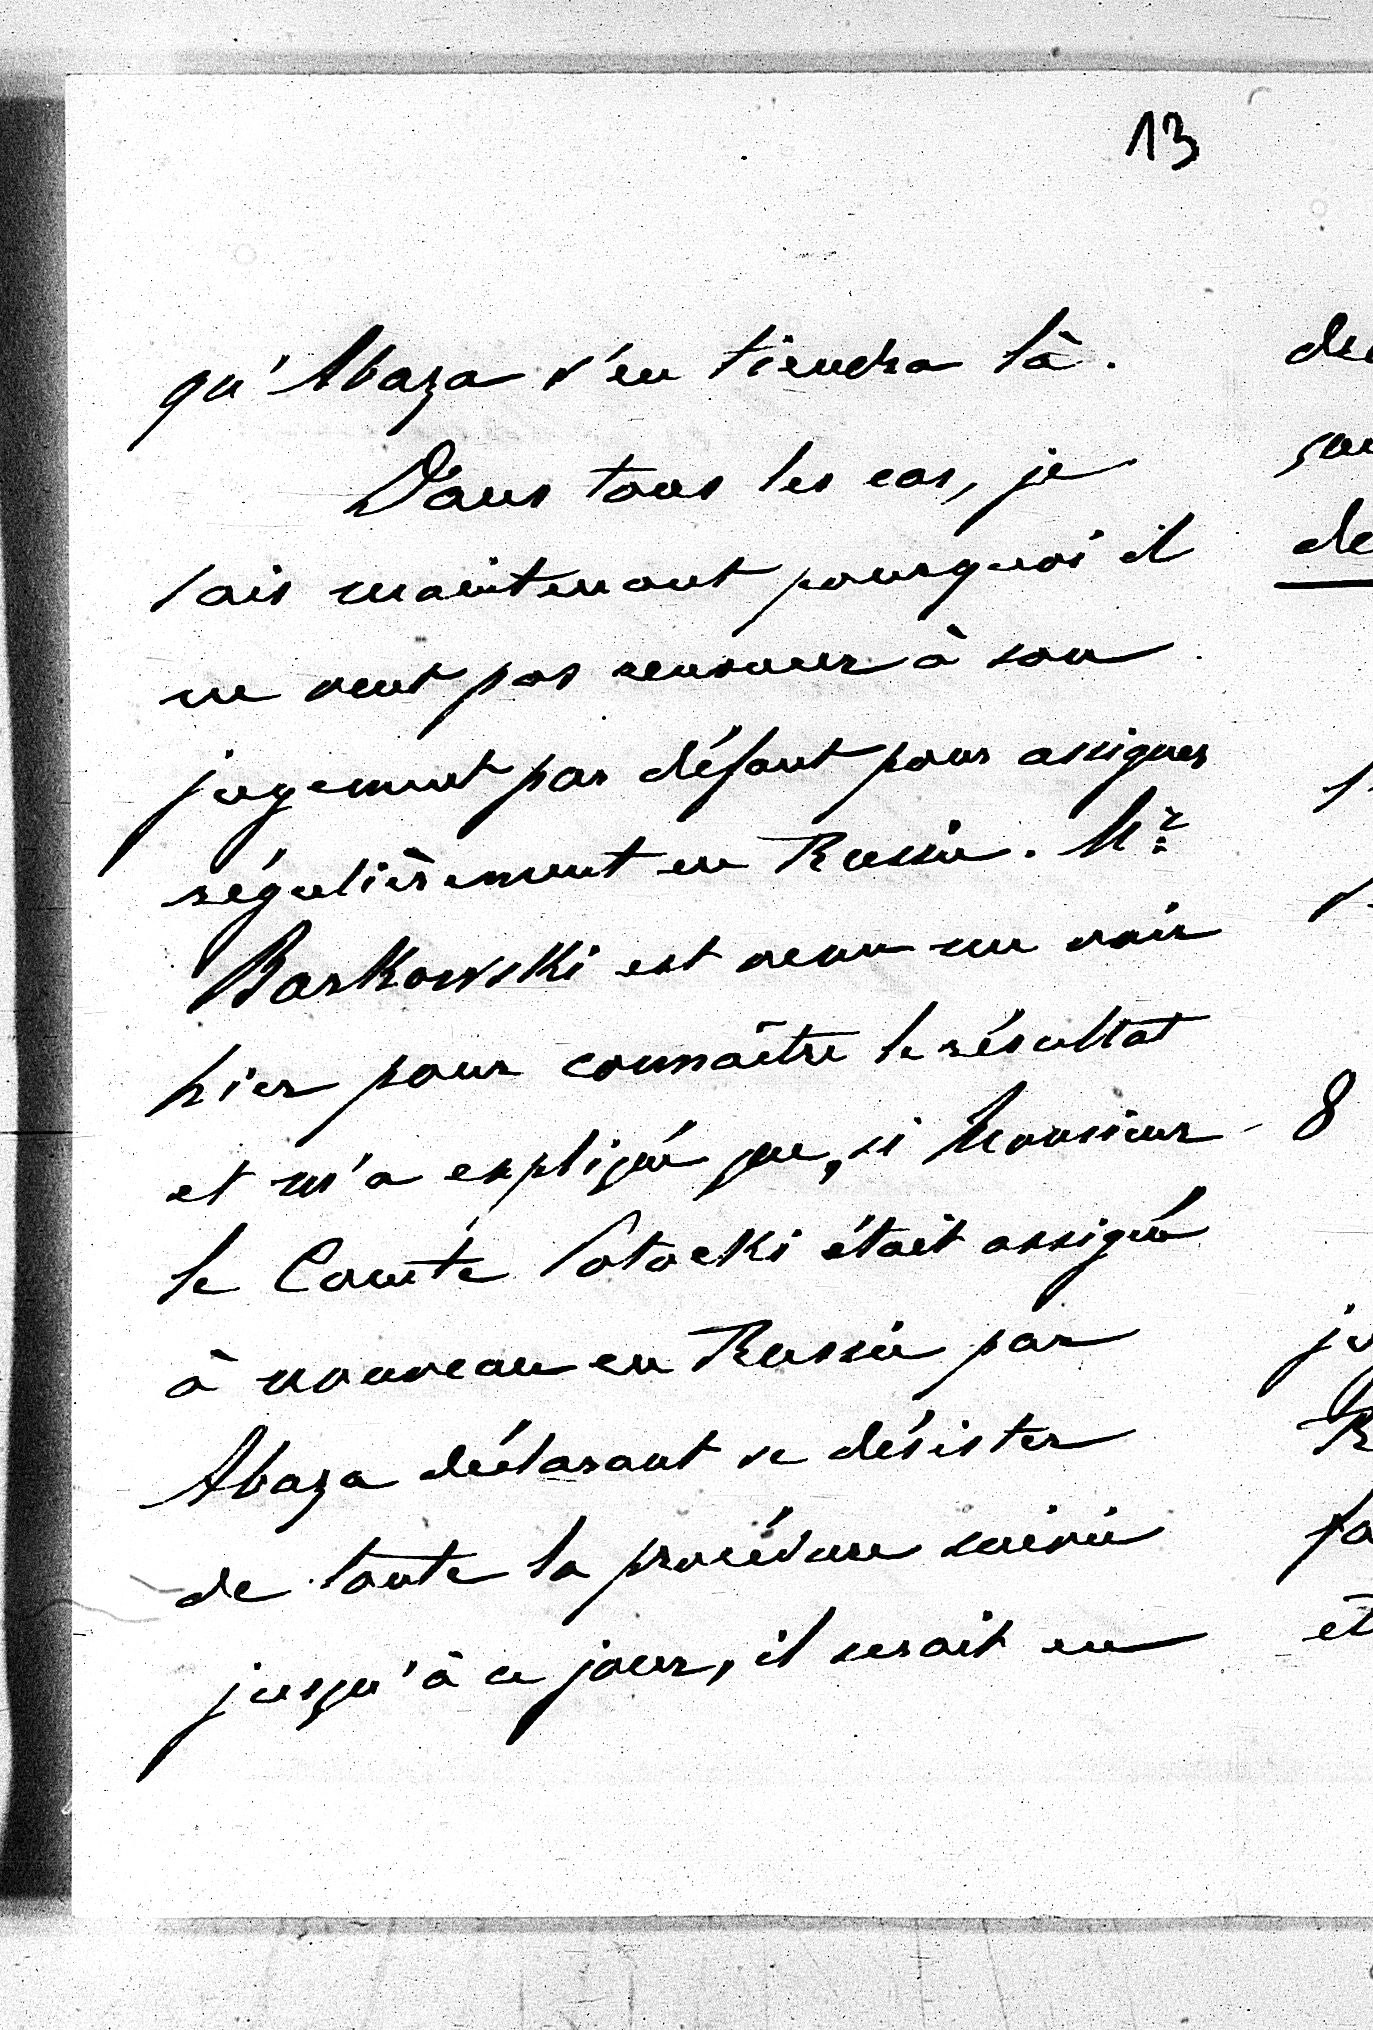 13
qu'Abaza s'en tiendra là.
Dans tous les cas, je
sais maintenant pourquoi il
ne veut pas renoncer à son
jugement par défaut pour assigner
régulièrement en Russie. Mr
Barkowski est venu me voir
hier pour connaître le résultat
et m'a expliqué que, si Monsieur
le Comte Potocki était assigné
à nouveau en Russie par
Abaza déclarant se désister
de toute la procédure suivie
jusqu'à ce jour, il serait en